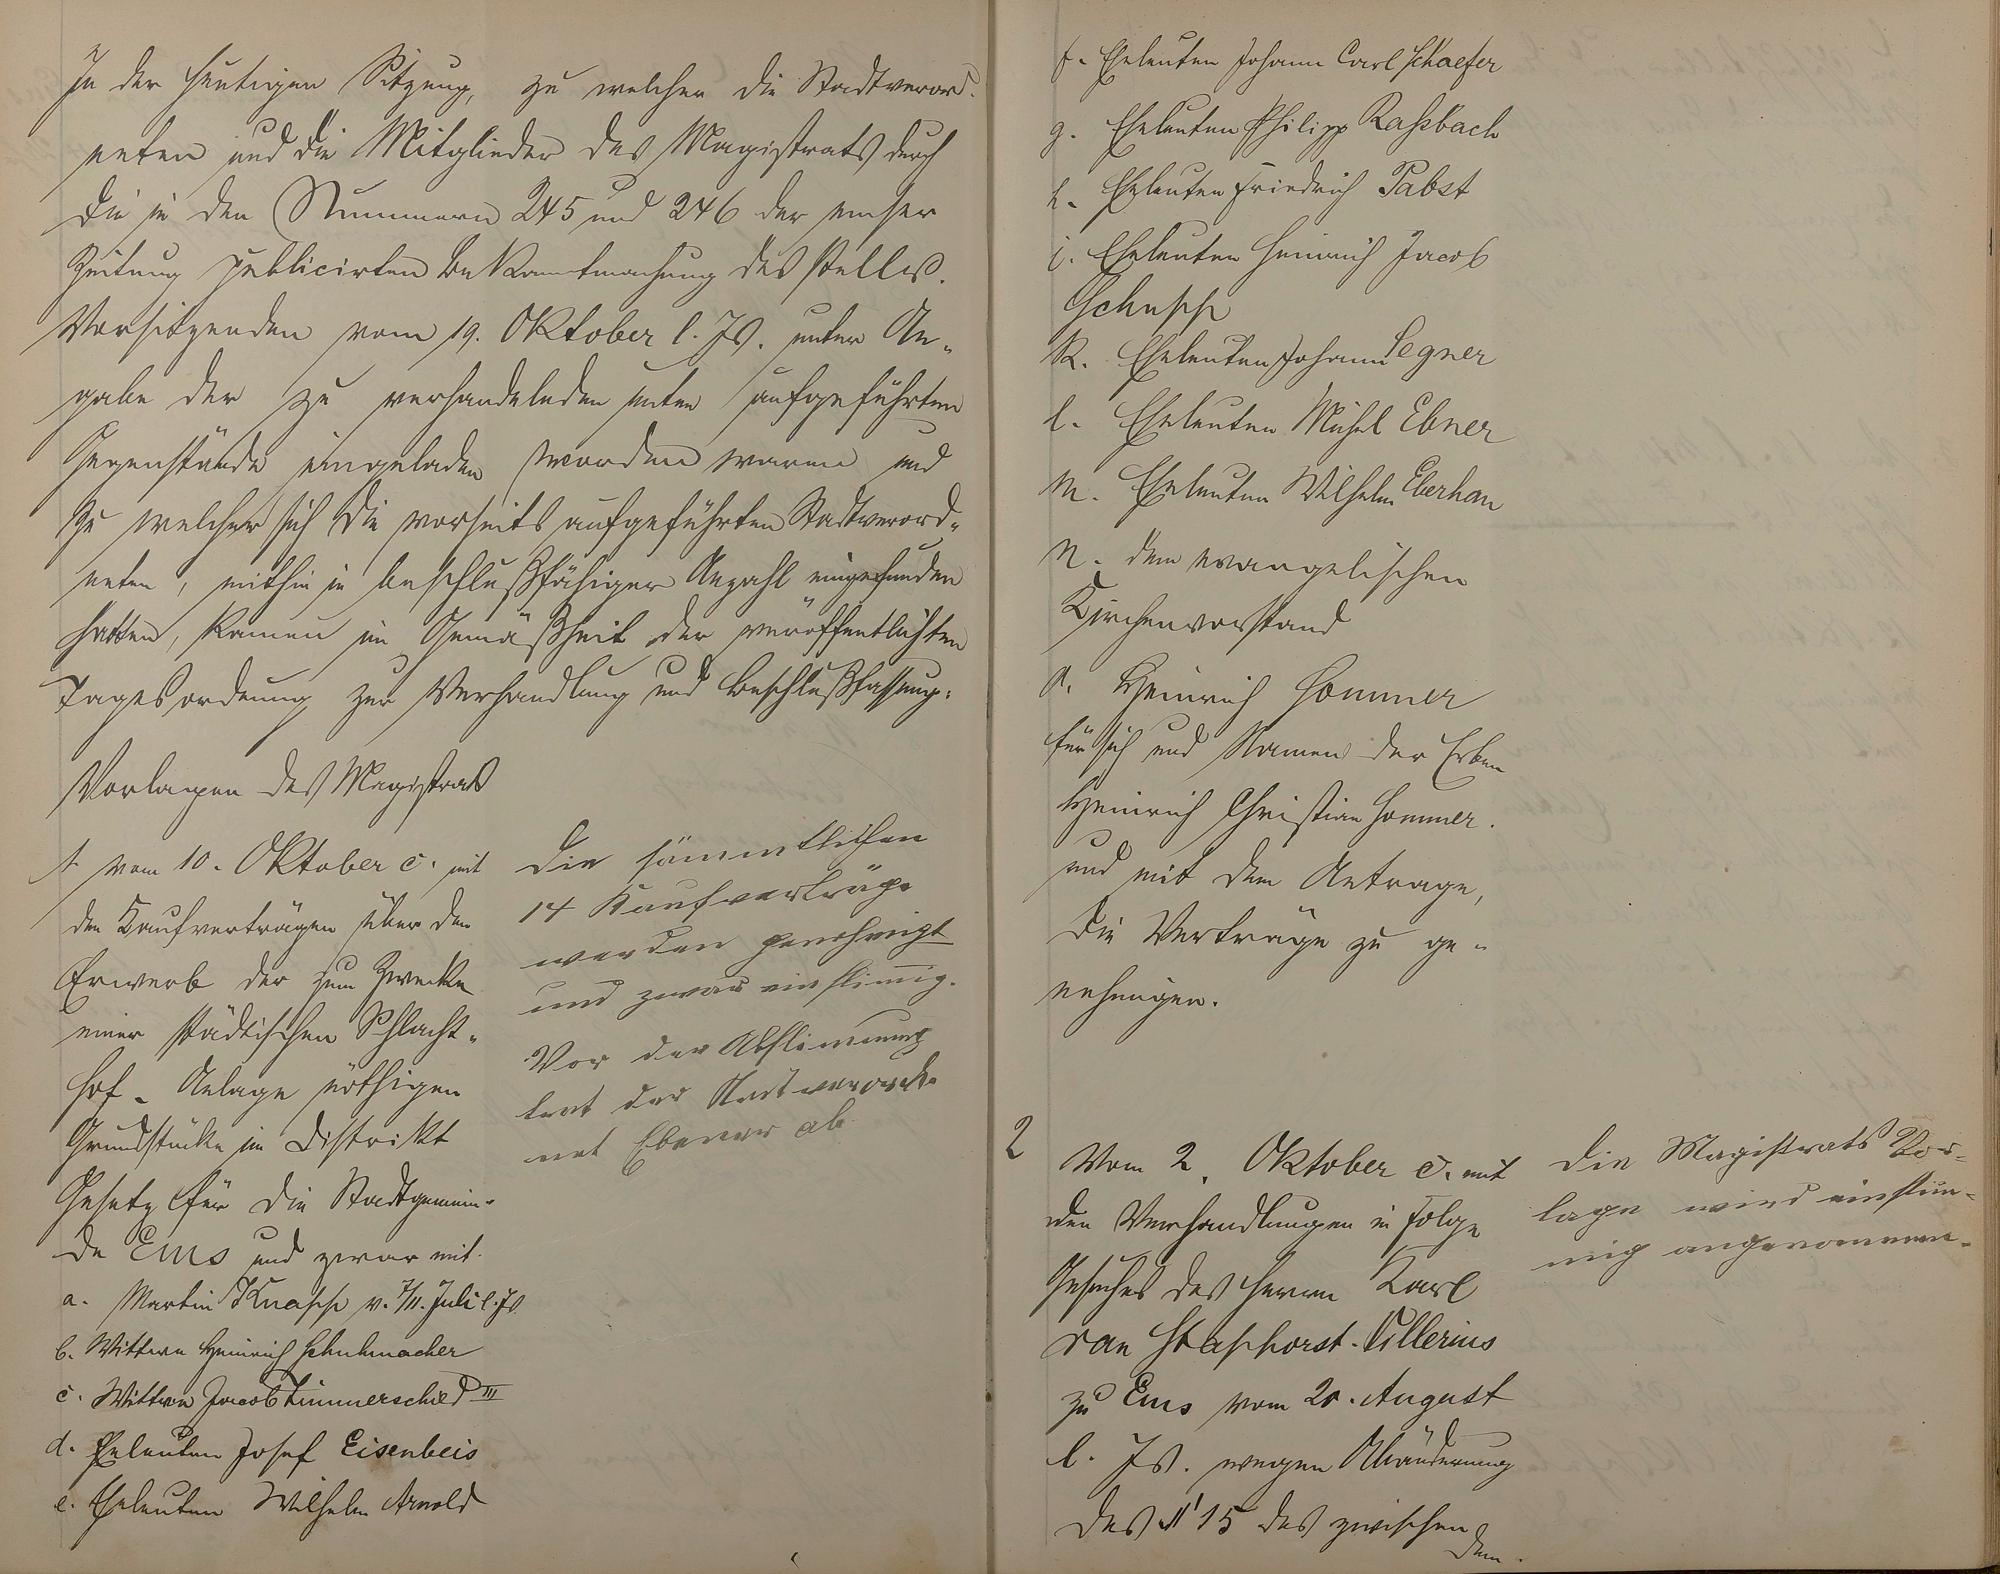 In der heutigen Sitzung, zu welcher die Stadtverord-
neten und die Mitglieder des Magistrats durch
die in den Nummern 245 und 246 der emser
Zeitung publicirten Bekanntmachung des stellv.
Vorsitzenden vom 19. Oktober l. Js. unter An-
gabe der zu verhandelnden unten aufgeführten
Gegenstände eingeladen worden waren und
zu welcher sich die vorseits aufgeführten Stadtverord-
neten, mithin in beschlußfähiger Anzahl eingefunden
hatten, kamen in Gemäßheit der veröffentlichten
Tagesordnung zur Verhandlung und Beschlußfassung:
Vorlagen des Magistrats
1. vom 10. Oktober c. mit
den Kaufverträgen über den
Erwerb der zum Zwecke
einer städtischen Schlacht-
hof-Anlage nöthigen
Grundstücke im Distrikt
Gesetz für die Stadtgemein-
de Ems und zwar mit
a. Martin Knapp v. 7/11. Juli l. Js.
b. Wittwe Heinrich Schuhmacher
c. Wittwe Jacob Linnerschied III
d. Eheleuten Josef Eisenbeis
e. Eheleuten Wilhelm Arnold
Die sämmtlichen
14 Kaufverträge
werden genehmigt
und zwar einstimig.
Vor der Abstimmung
trat der Stadtverord-
net Ebener ab
f. Eheleuten Johann Carl Schaefer
g. Eheleuten Philipp Raßbach
h. Eheleuten Friedrich Pabst
i. Eheleuten Heinrich Jacob
Schupp
k. Eheleuten Johann Segner
l. Eheleuten Michel Ebner
m. Eheleuten Wilhelm Eberhan
n. dem evangelischen
Kirchenvorstand
o. Heinrich Sommer
für sich und Namen der Erben
Heinrich Christian Sommer.
und mit dem Antrage,
die Verträge zu ge-
nehmigen.
2 Vom 2. Oktober c. mit
den Verhandlungen in Folge
Gesuches des Herrn Karl
van Staphorst-Villerius
zu Ems vom 20. August
l. Js. wegen Abänderung
des § 15 des zwischen
dem
Die Magistrats Vor-
lage wird einstim-
mig angenommen.